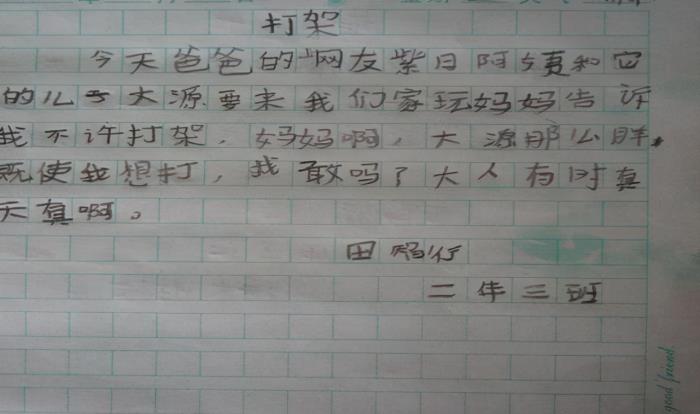 打架
今天爸爸的网友紫日阿姨和它
的儿子大源要来我们家玩妈妈告诉
我不许打架，妈妈啊，大源那么胖，
既使我想打，我敢吗？大人有时真
天真啊。
田 行
二年三班
good friend